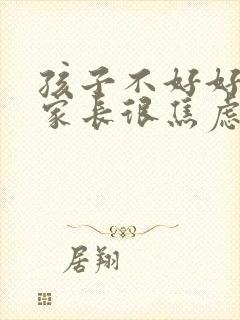 孩子不好好
家长很焦虑
居翔